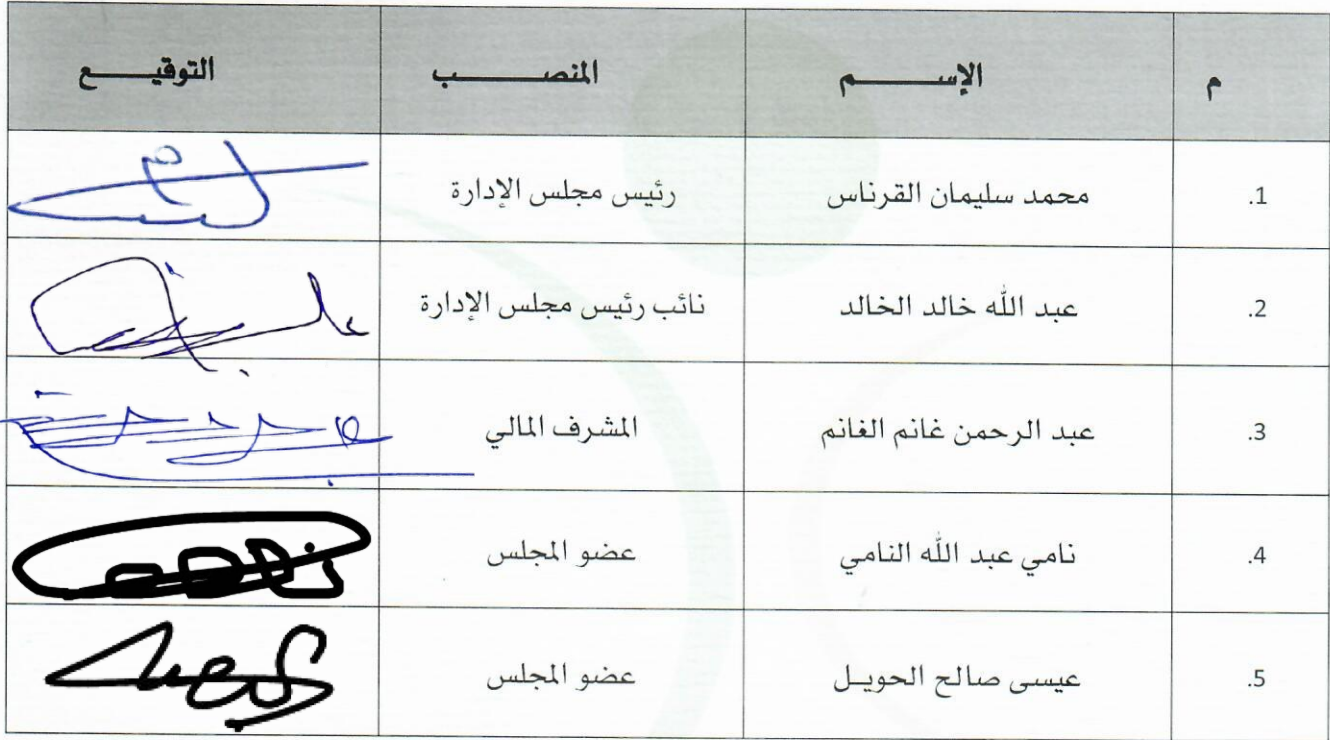 م الإســـــــم المنصـــــــب التوقيـــــع
1. محمد سليمان القرناس رئيس مجلس الإدارة
2. عبد الله خالد الخالد نائب رئيس مجلس الإدارة
3. عبد الرحمن غانم الغانم المشرف المالي
4. نامي عبد الله النامي عضو المجلس
5. عيسى صالح الحويـل عضو المجلس